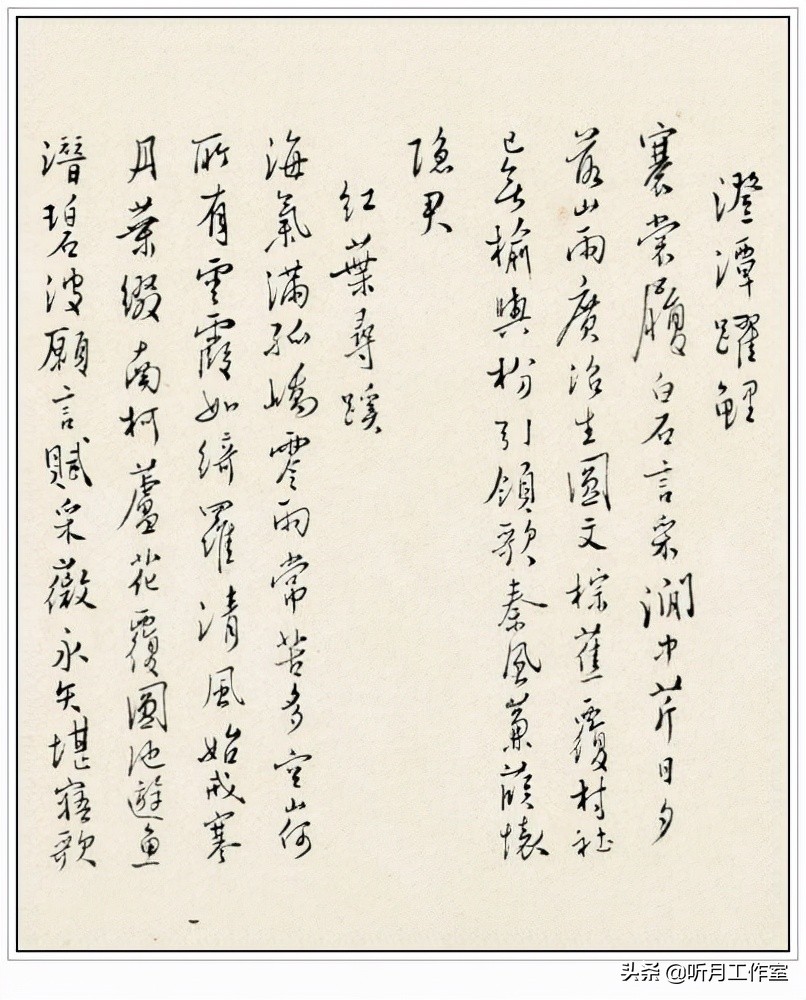 澄潭躍鯉
褰裳履白石言采澗中芹日夕
落山雨廣沼生圓文棕蕉覆村社
已無榆與枌引領歌秦風蒹葭懷
隱君
紅葉尋蹊
海氣滿孤嶠零雨常苦多空山何
所有雲霞如綺羅清風始戒寒
丹葉綴南柯蘆花覆圓池遊魚
潛碧波願言賦采薇永矢堪寤歌
头条 @听月工作室